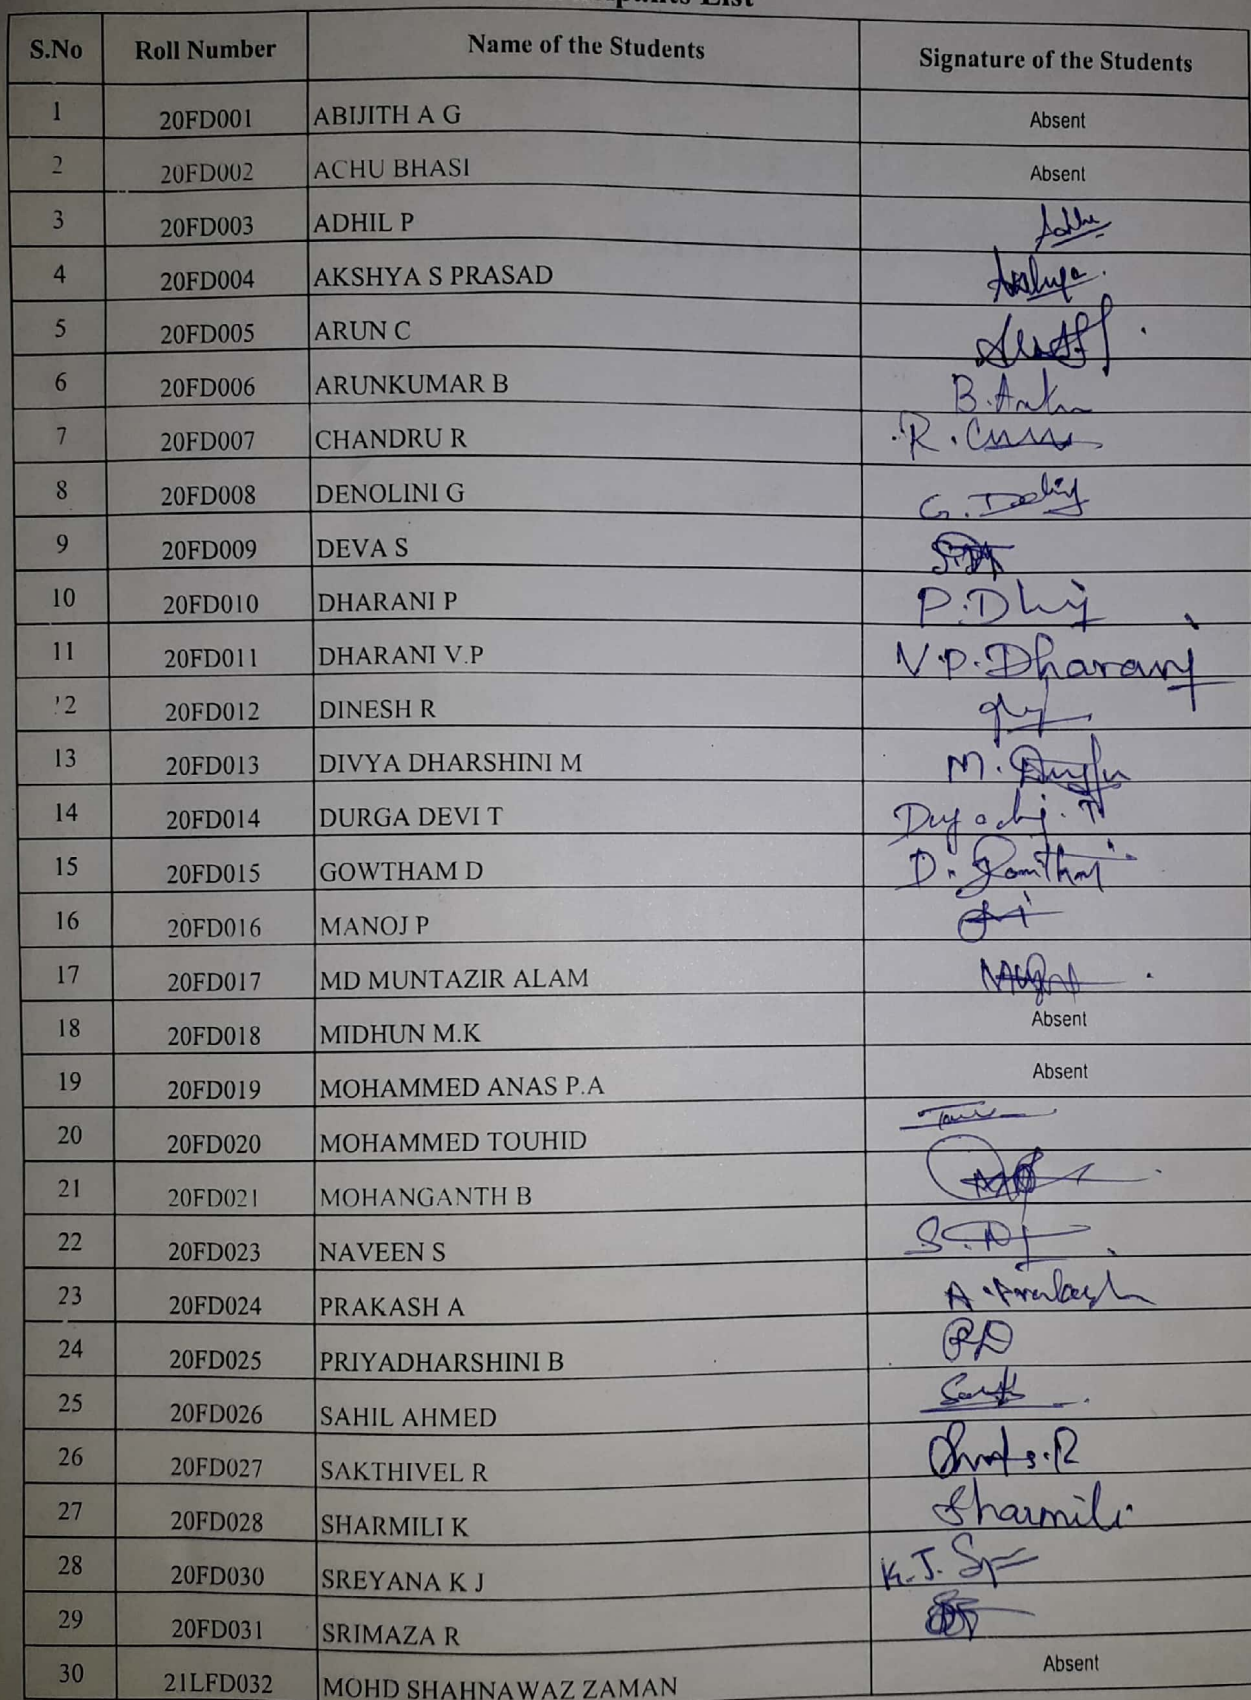 List
S.No Roll Number Name of the Students Signature of the Students
1 20FD001 ABIJITH A G Absent
2 20FD002 ACHU BHASI Absent
3 20FD003 ADHIL P
4 20FD004 AKSHYA S PRASAD
5 20FD005 ARUN C
6 20FD006 ARUNKUMAR B
7 20FD007 CHANDRU R
8 20FD008 DENOLINI G
9 20FD009 DEVA S
10 20FD010 DHARANI P
11 20FD011 DHARANI V.P V.P.Dharani
12 20FD012 DINESH R
13 20FD013 DIVYA DHARSHINI M
14 20FD014 DURGA DEVI T
15 20FD015 GOWTHAM D
16 20FD016 MANOJ P
17 20FD017 MD MUNTAZIR ALAM
18 20FD018 MIDHUN M.K Absent
19 20FD019 MOHAMMED ANAS P.A Absent
20 20FD020 MOHAMMED TOUHID
21 20FD021 MOHANGANTH B
22 20FD023 NAVEEN S
23 20FD024 PRAKASH A A.Prakash
24 20FD025 PRIYADHARSHINI B
25 20FD026 SAHIL AHMED
26 20FD027 SAKTHIVEL R
27 20FD028 SHARMILI K Sharmili
28 20FD030 SREYANA K J
29 20FD031 SRIMAZA R
30 21LFD032 MOHD SHAHNAWAZ ZAMAN Absent